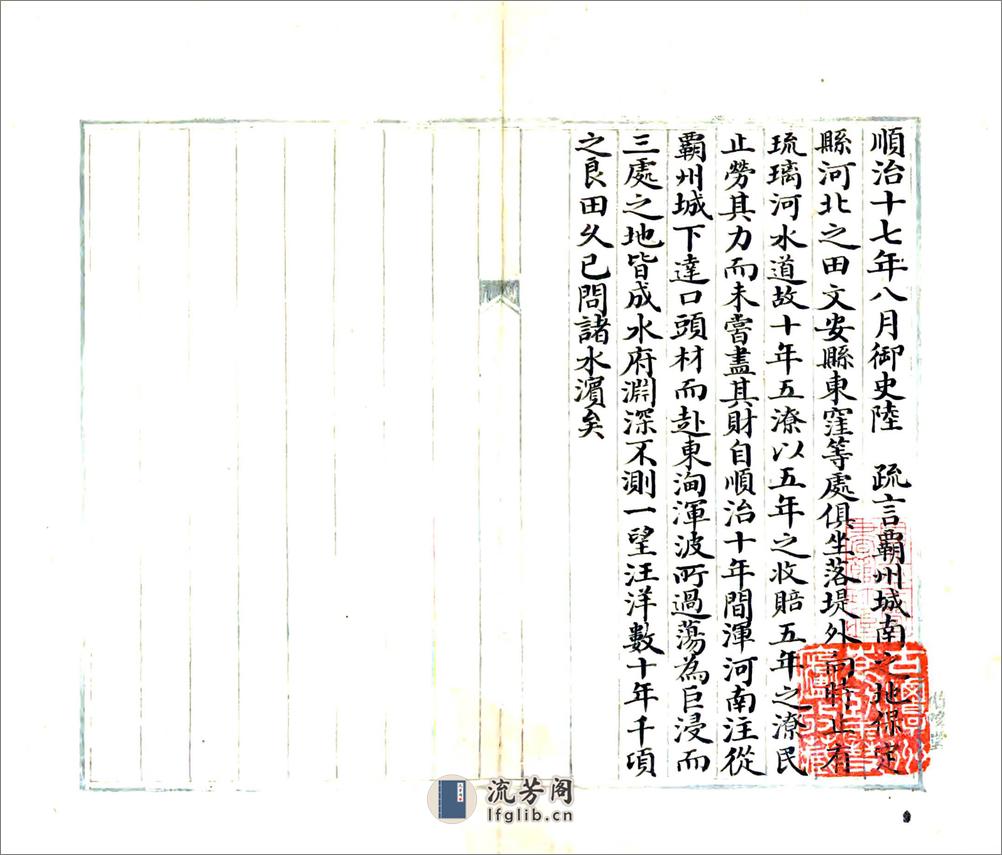 順治十七年八月御史陸　疏言覇州城南之地保定
縣河北之田文安縣東窪等處俱坐落堤外向時止有
琉璃河水道故十年五潦以五年之收賠五年之潦民
止勞其力而未嘗盡其財自順治十年間渾河南注從
覇州城下達口頭材而赴東淘渾波所過蕩為巨浸而
三處之地皆成水府淵深不測一望汪洋數十年千項
之良田久已問諸水濱矣
流芳阁
lfglib.cn
9